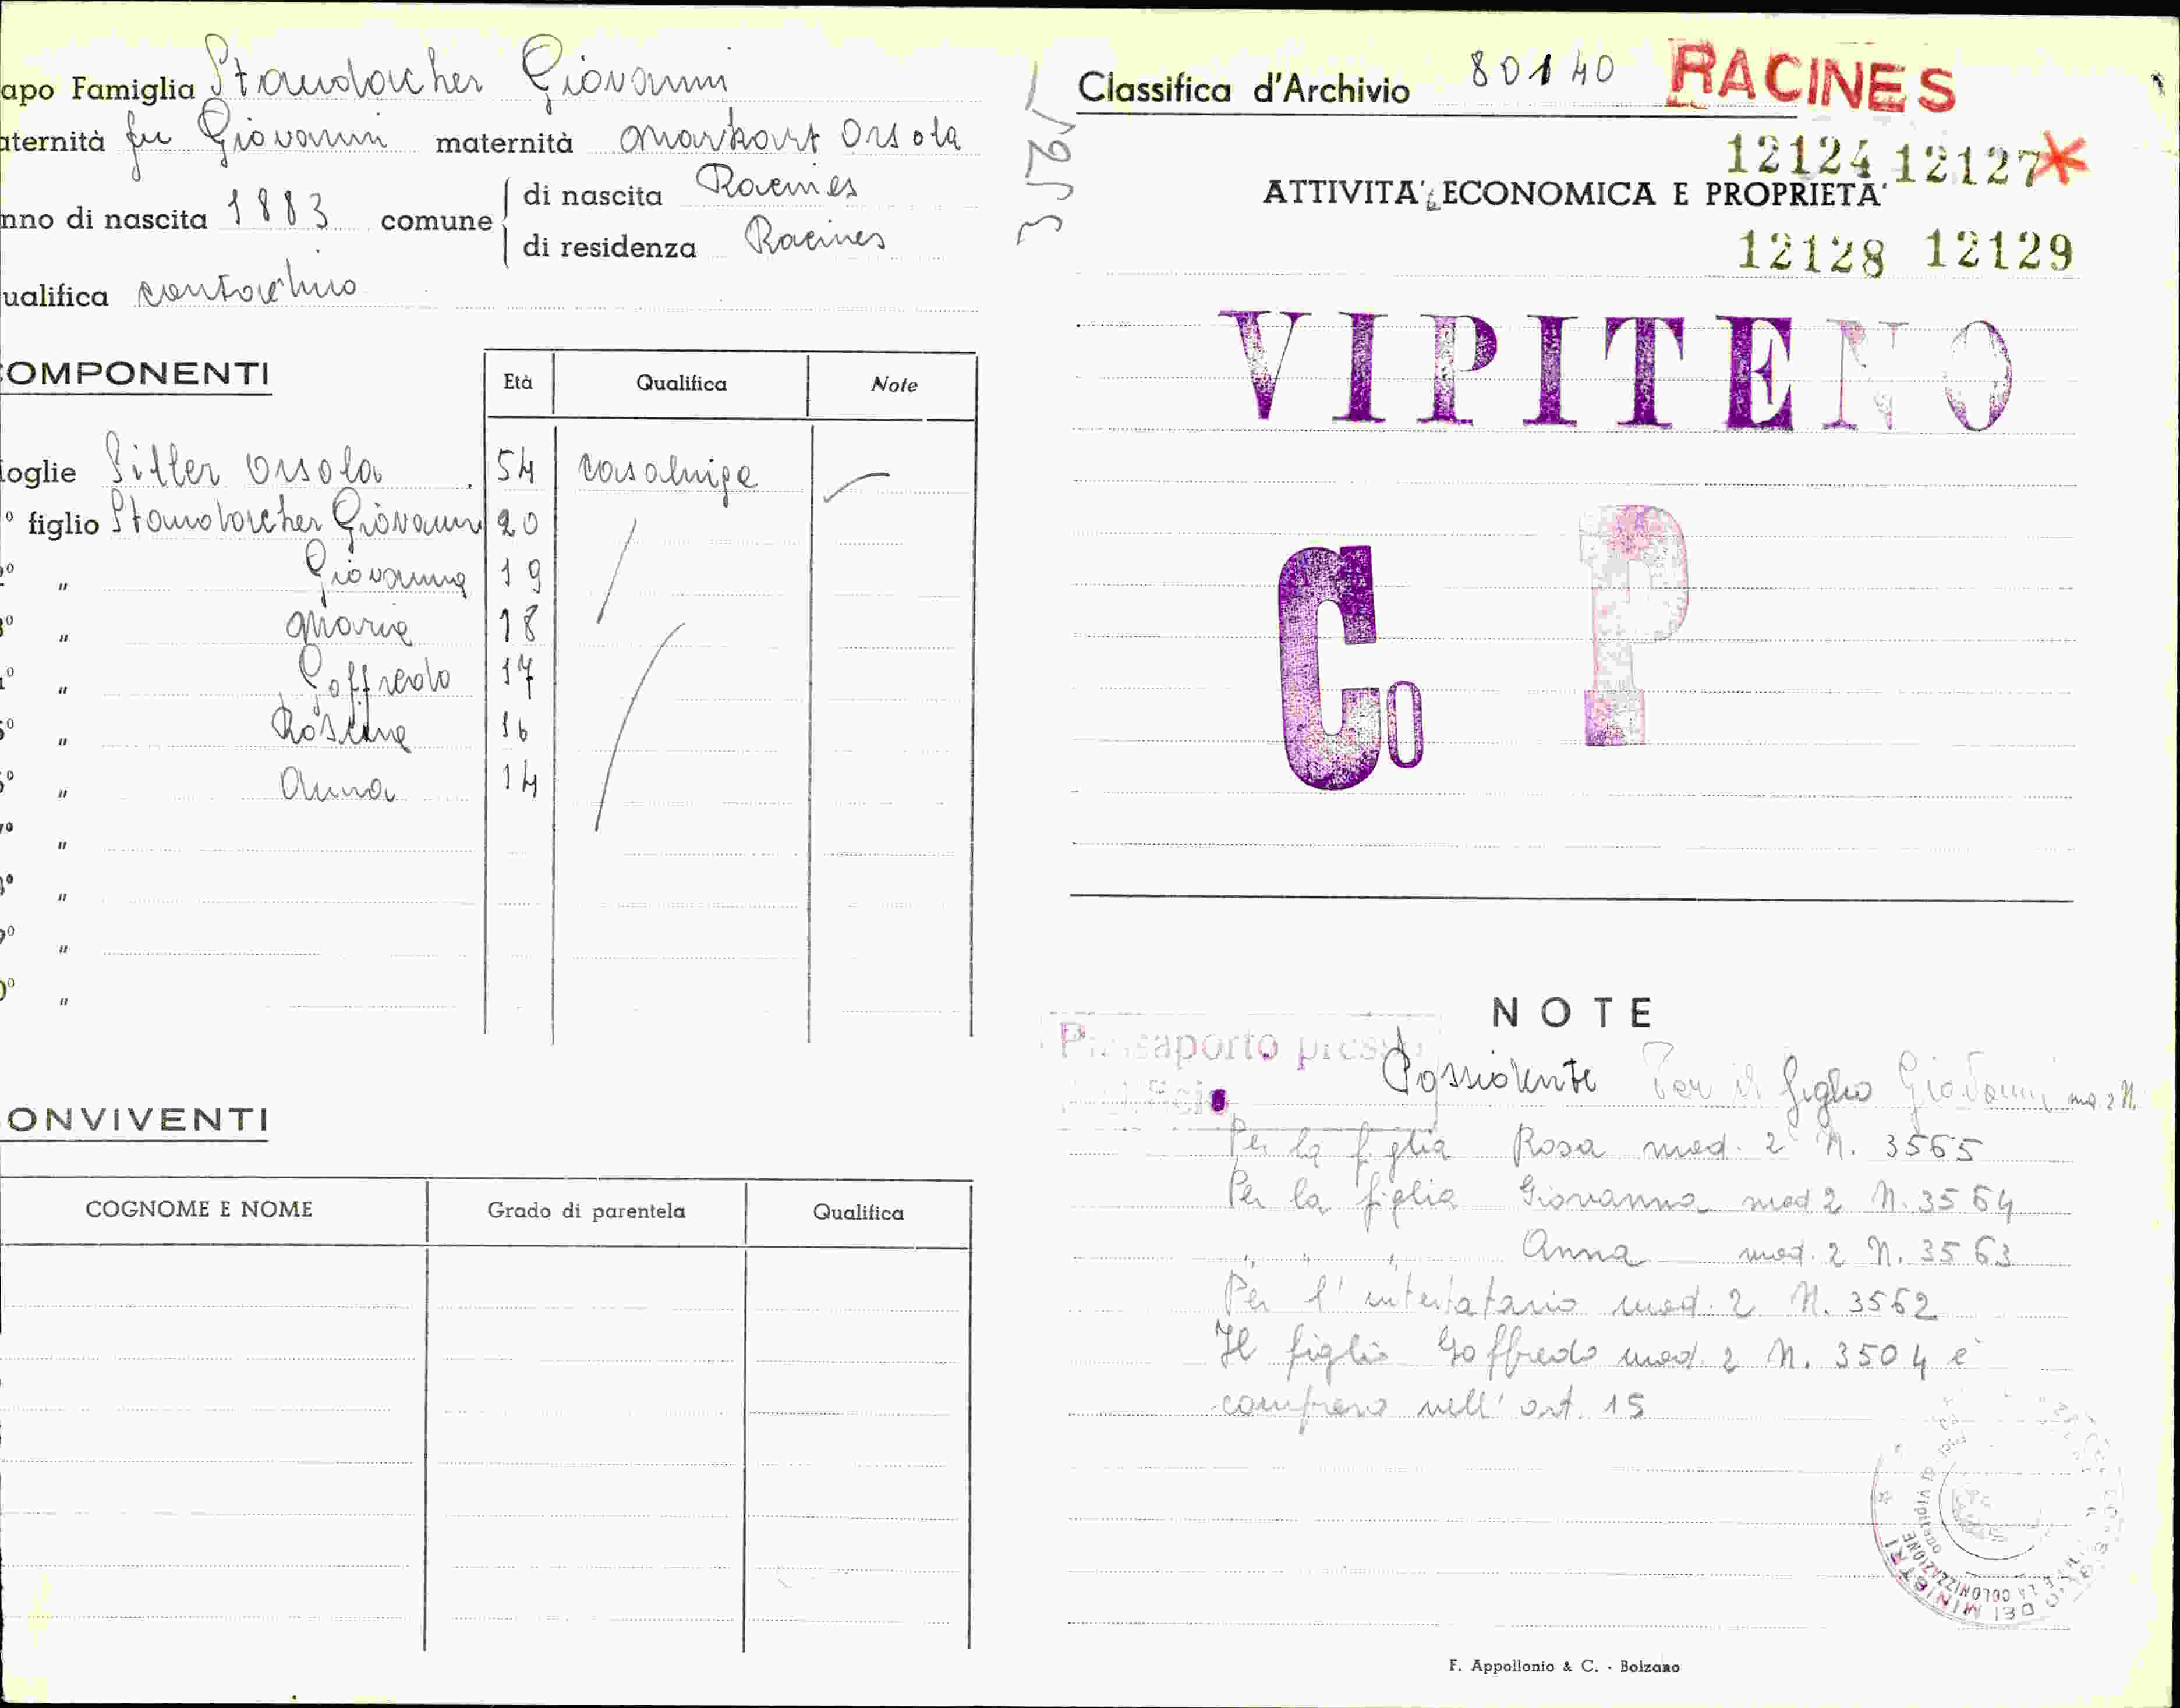 apo Famiglia Staudacher Giovanni
aternità fu Giovanni maternità Markart Orsola
nno di nascita 1883 comune di nascita Racines
di residenza Racines
ualifica contadino
OMPONENTI
Età Qualifica Note
oglie Siller Orsola 54 casalinga
° figlio Staudacher Giovanni 20
° " Giovanna 19
° " Maria 18
° " Goffredo 17
° " Rosina 16
° " Anna 14
° "
° "
° "
0° "
ONVIVENTI
COGNOME E NOME Grado di parentela Qualifica
Classifica d'Archivio 80140 RACINES
12124 12127*
ATTIVITA' ECONOMICA E PROPRIETA'
12128 12129
VIPITENO
Co P
NOTE
Passaporto presso
Possidente Per il figlio Giovanni mo 2 N.
3521
Per la figlia Rosa mod. 2 N. 3565
Per la figlia Giovanna mod 2 N. 3564
" " " Anna mod. 2 N. 3563
Per l'intestatario mod. 2 N. 3562
Il figlio Goffredo mod. 2 N. 3504 è
compreso nell' art. 15
DEI MINISTRI
E LA COLONIZZAZIONE
di Vipiteno
F. Appollonio & C. - Bolzano